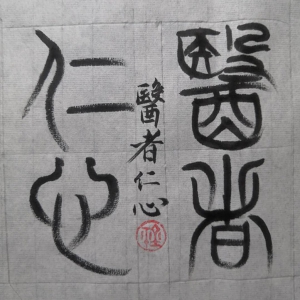 醫者
醫者仁心
仁心